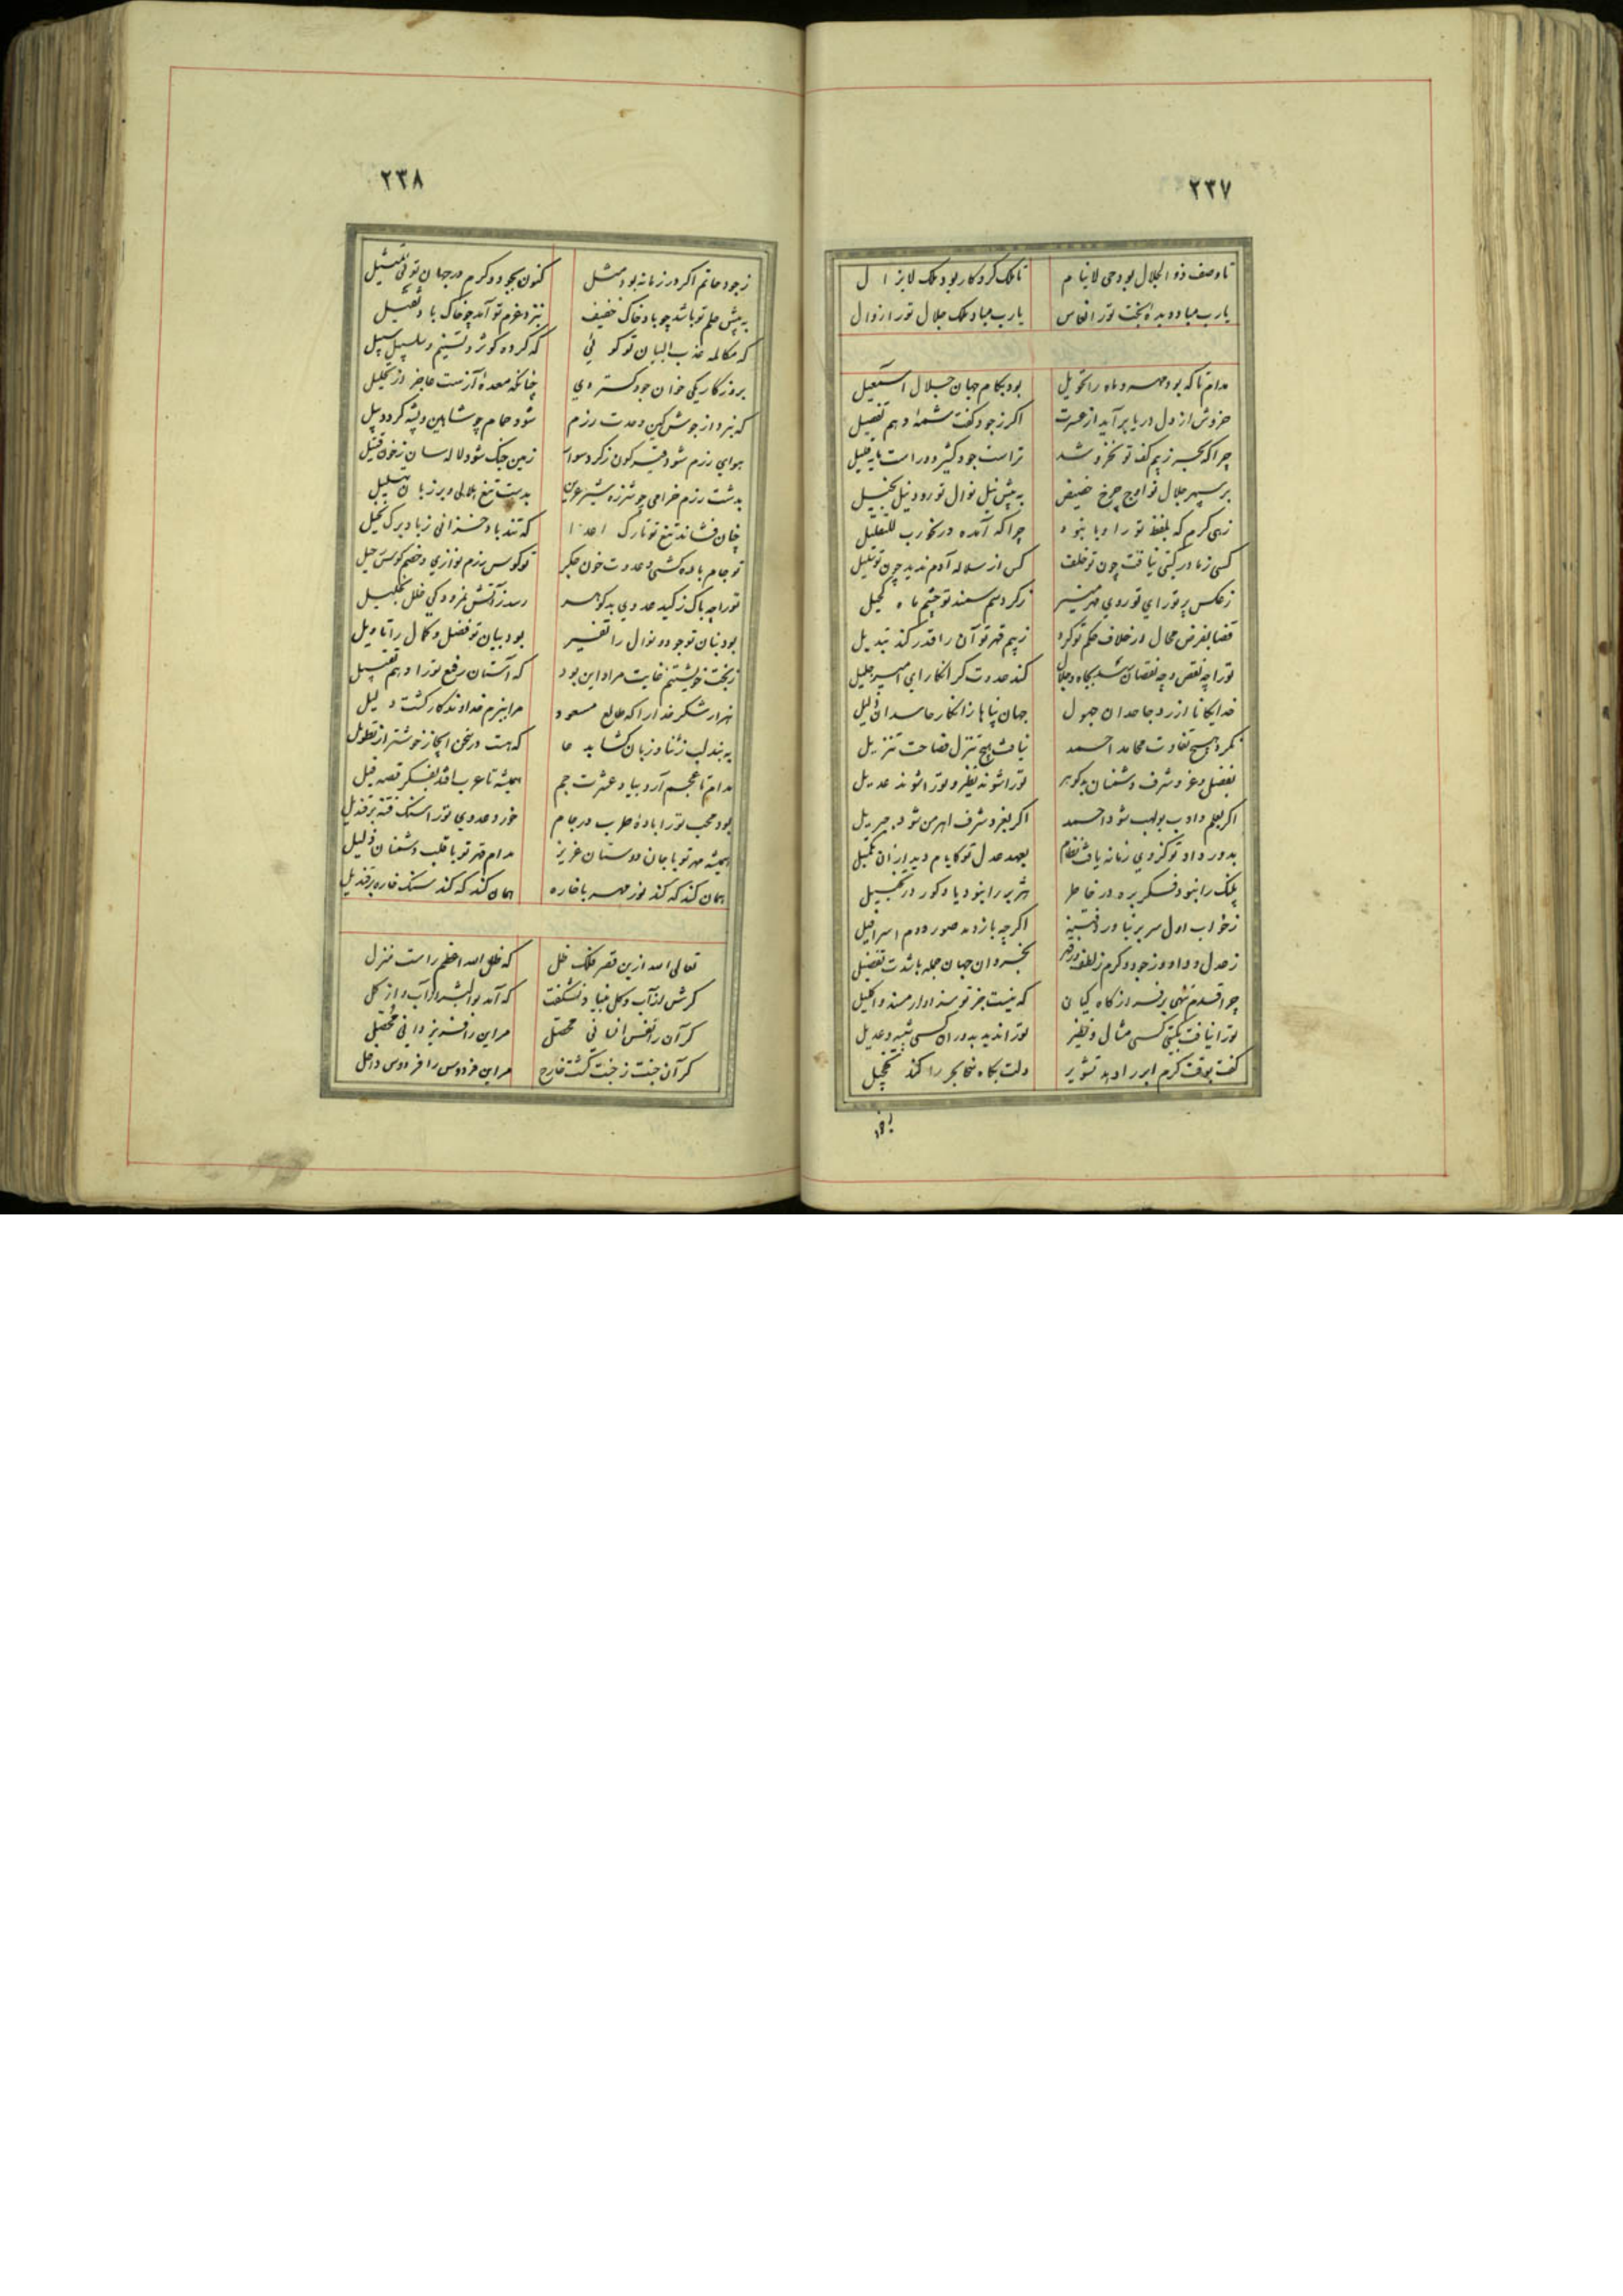 ۲۳۷
تا وصف ذو الجلال بود حی لاینام تا ملک کردکار بود ملک لایزال
یارب مباد دیده بخت تو را نعاس یارب مباد ملک جلال تو را زوال
مدام تا که بود مهر و ماه را تحویل بود بکام جهان جلال اسمعیل
خروش از دل دریا برآید از عسرت اگر ز جود کفت شمه‌ٔ دهم تفصیل
چرا که بحر ز بیم کف تو نخروشد تراست جود کثیر و وراست مایه قلیل
بر سپهر جلال تو اوج چرخ حضیض به پیش نیل نوال تو رود نیل بخیل
زهی کرم که بلفظ تو را و با نبود چرا که آمده در نحو رب للتقلیل
کسی ز مادر کیتی نیافت چون تو خلف کس از سلاله آدم ندید چون تو سلیل
ز عکس پرتو رای تو روی مهر منیر ز کرد سم سمند تو چشم ماه کحیل
قضا بفرض محال ار خلاف حکم تو کرد ز بیم قهر تو آن را قدر کند تبدیل
تو را چه نقص و چه نقصان رسد بجاه و جلال کند عدوت کر انکار ای امیر جلیل
خدایکانا از رد جاحدان جهول جهان پناها ز انکار حاسدان ذلیل
نکرد هیچ تفاوت محامد احمد نیافت هیچ تنزل فصاحت تنزیل
بفضل و عز و شرف دشمنان بدکوهر تو را شوند نظیر و تو را شوند عدیل
اکر بعلم و ادب بولهب شود احمد اکر بعز و شرف اهرمن شود جبریل
بدور داد تو کزوی زمانه یافت نظام بعهد عدل تو کایام دید ازان تکمیل
پلنک را نبود فکر بره در خاطر هژبر را نبود یاد کور در تخییل
ز خواب اول سر بر نیاورد فتنه اگرچه باز دمد صور دوم اسرافیل
ز عدل و داد و ز جود و کرم ز لطف و ز قهر بخسروان جهان جمله باشدت تفضیل
چرا قدم ننهی بر فراز کاه کیان که نیست جز تو سزاوار مسند و اکلیل
تو را نیافت بکیتی کسی مثال و نظیر تو را ندید بدوران کسی شبیه و عدیل
کفت بوقت کرم ابر را دهد تشویر دلت بکاه سخا بحر را کند تخجیل
۲۳۸
ز جود حاتم اکر در زمانه بود مثل کنون بجود و کرم در جهان توئی تمثیل
به پیش حلم تو باشد چو باد خاک خفیف بنزد عزم تو آمد چو خاک باد ثقیل
که مکالمه عذب البیان تو کوئی که کرده کوثر و تسنیم و سلسبیل سبیل
بروزکار یکی خوان جود کستردی چنانکه معده آز است عاجز از تحلیل
که نبرد از جوش کین و حدت رزم شود حمام چو شاهین و پشه کردد پیل
هوای رزم شود قیرکون ز کرد سوار زمین جنک شود لاله سان ز خون قتیل
بدشت رزم خرامی چو شرزه شیر عرین بدست تیغ هلالی و بر زبان تهلیل
چنان فشاند تیغ تو تارک اعدا که تندباد خزانی ز باد برک نخیل
تو جام باده کشی و عدوت خون جکر تو کوس رزم نوازی و خصم کوس رحیل
تو را چه باک ز کید عدوی بدکوهر رسد ز آتش نمرود کی خلل بخلیل
بود بنان تو جود و نوال را تفسیر بود بیان تو فضل و کمال را تاویل
ز بخت خویشتنم غایت مراد این بود که آستان رفیع تو را دهم تقبیل
هزار شکر خدا را که طالع مسعود مرا ببزم خداوندکار کشت دلیل
به بند لب ز ثنا و زبان کشا بدعا که هست در سخن ایجاز خوشتر از تطویل
مدام تا عجم آرد بیاد عشرت جم همیشه تا عرب افتد بفکر قصه فیل
بود محب تو را باده طرب در جام خورد عدوی تو را سنک فتنه بر قندیل
همیشه مهر تو با جان دوستان عزیز مدام قهر تو با قلب دشمنان ذلیل
همان کند که کند نور مهر با خاره همان کند که کند سنک خاره بر قندیل
تعالی الله ازین قصر فلک ظل که ظل الله اعظم راست منزل
کرش از آب و کل بنیاد نشکفت که آمد بوالبشر از آب و از کل
کر آن را نفس انسانی محصل مر این را فر یزدانی محصل
کر آن جنت ز جنت کشت خارج مر این فردوس را فردوس داخل